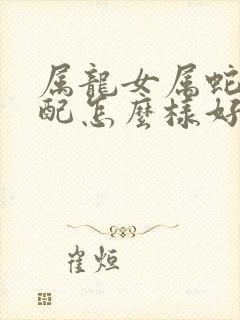 属龍女属蛇
配怎麼樣好
崔烜